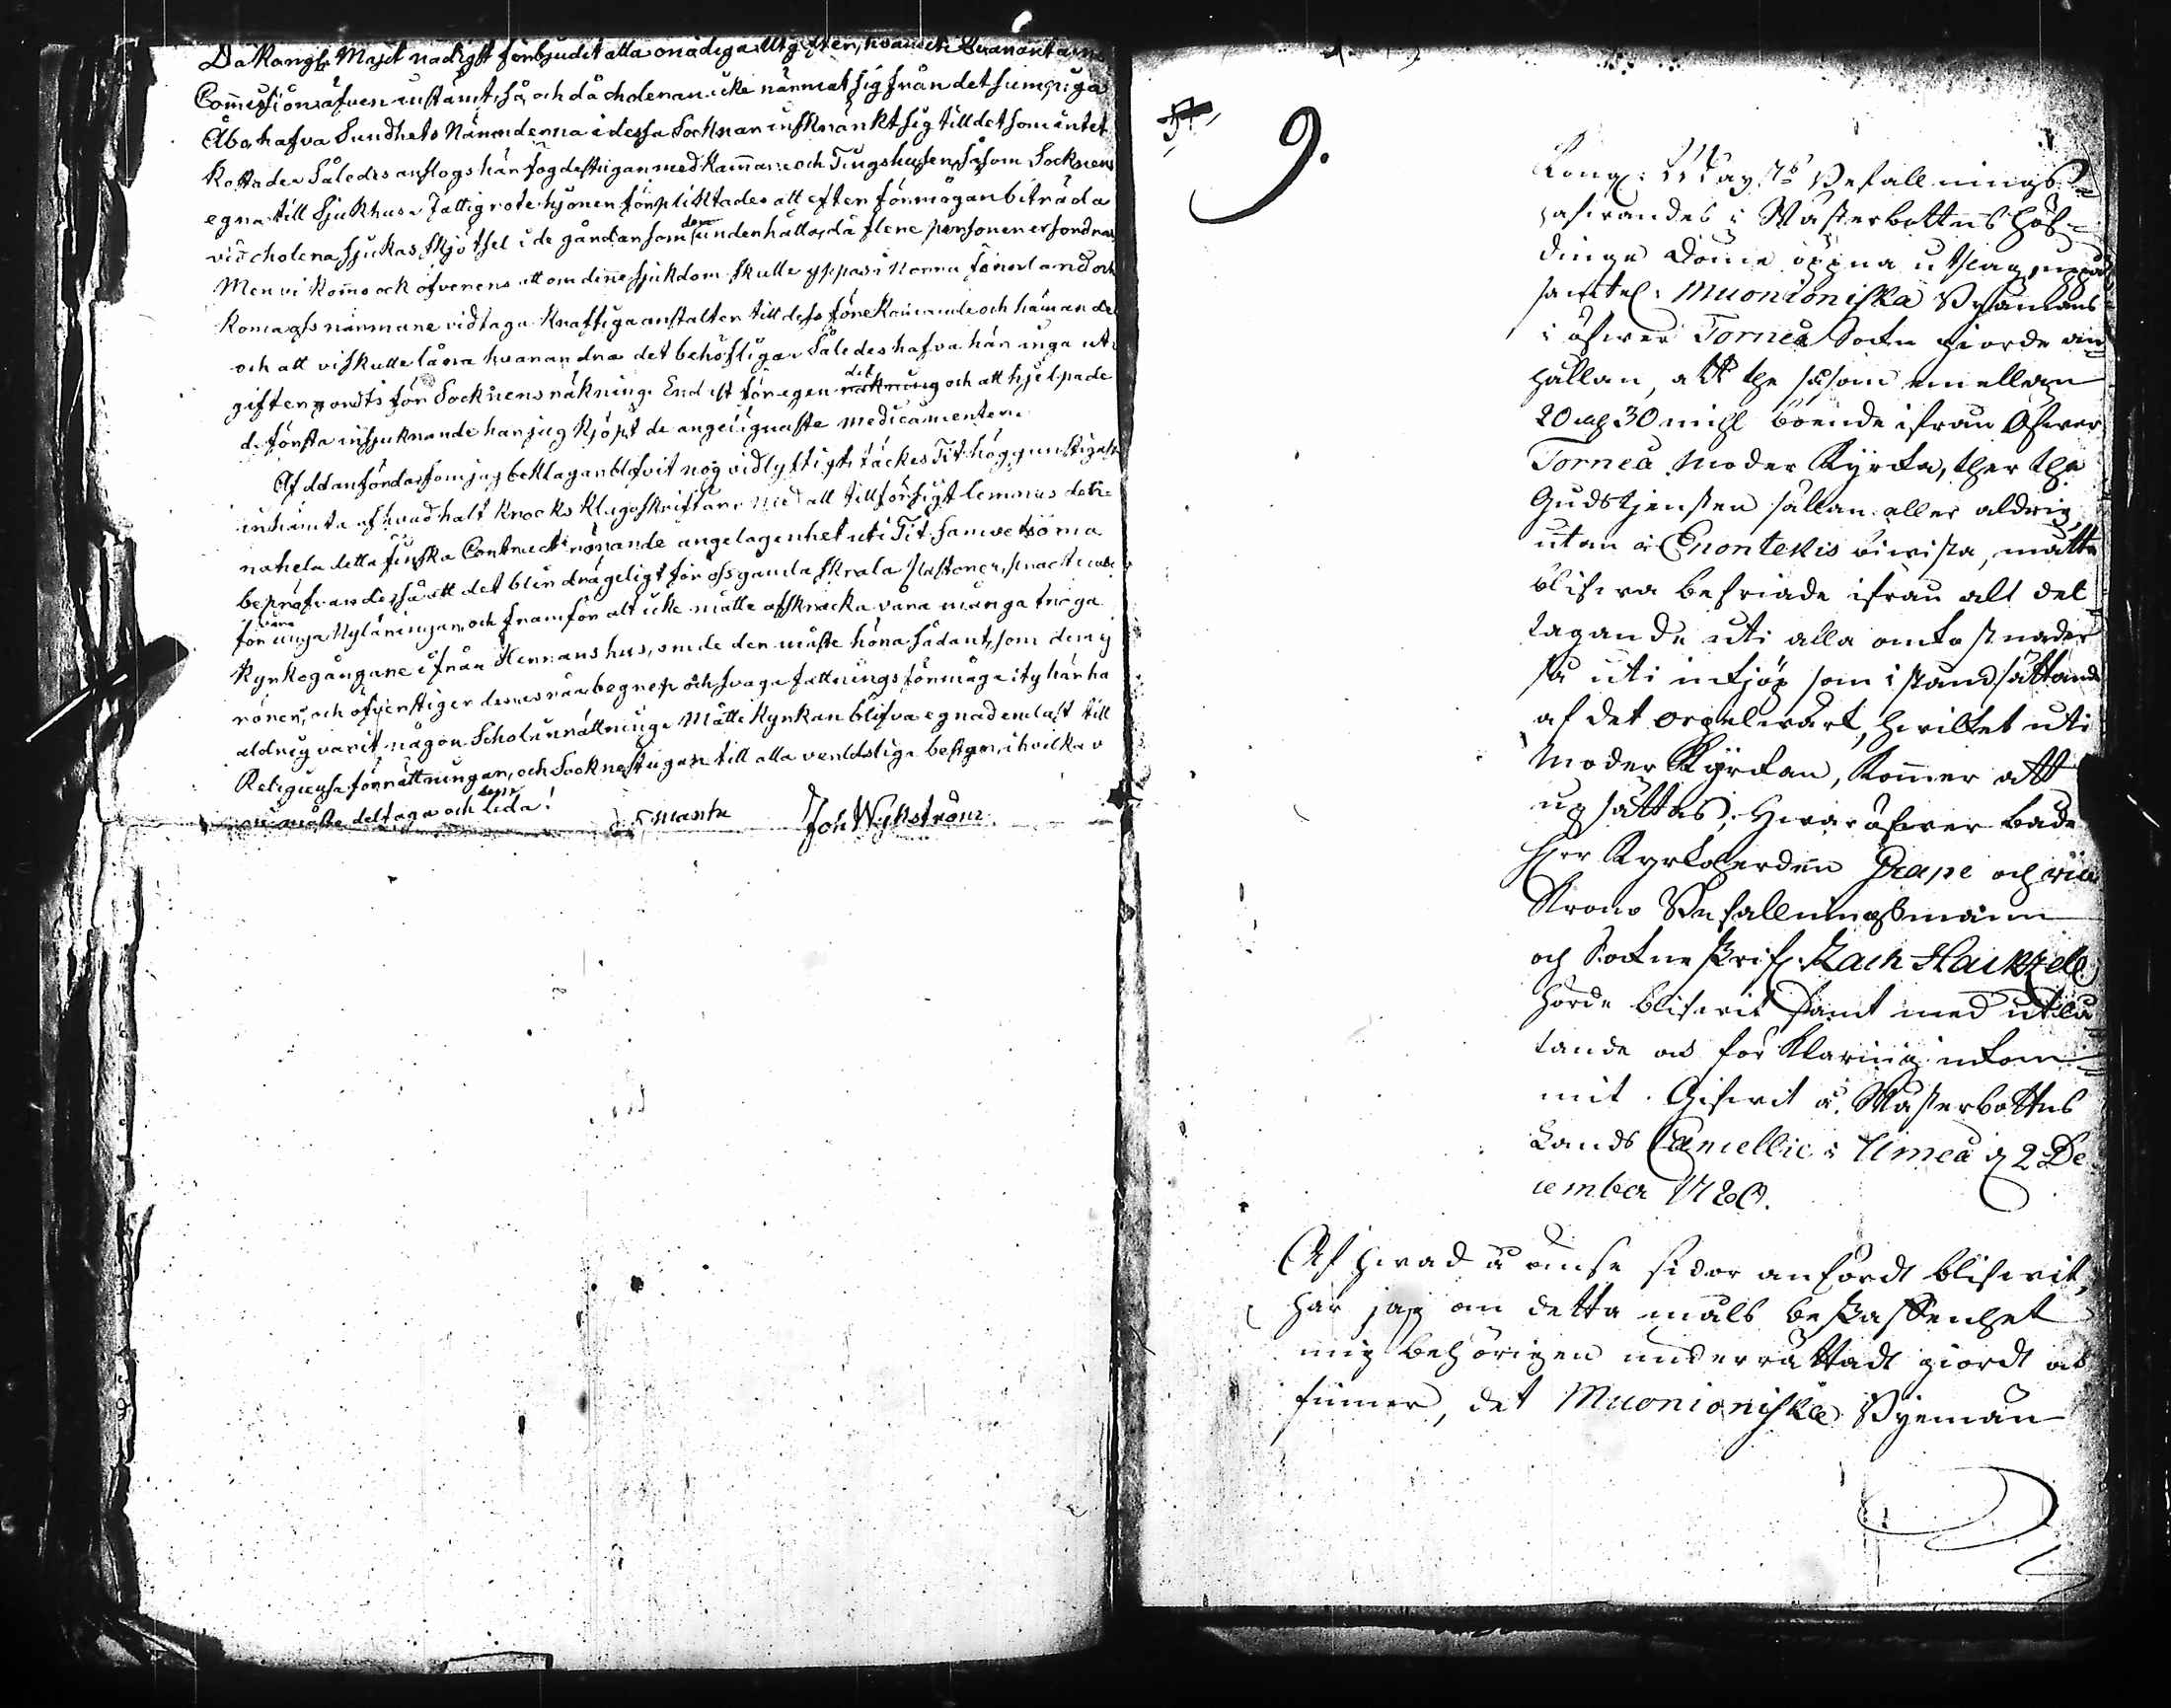 Da Kongl. Majst nadigst förbjudit alla onödiga Utgifter, hvaruti Quarantains
Commission äfven instämt, så, och då choleran icke närmat sig från det sumpiga
Åbo, hafva Sundhets Nämnderna i dessa Socknar inskränkt sig till det som intet
kostade. Således anslogs här fogdestugan med kammare och Tingshusen, såsom Socknens
egna till Sjukhus. Fattigrote hjonen förpliktades att efter förmågan biträda
vid cholera sjukas skjötsel i de gårdar som dem underhålla, då flere personer erfordras
Men vi komo ock öfverens att om denne sjukdom skulle yppas i Norra
komma ofs närmare vidtaga kraftiga anstalter till dess förekommande och hämmande
och att vi skulle låna hvarandra det behöfliga. Således hafva här inga ut-
gifter gordts för Socknens räkning. Endast för egen del och att hjelpa de
de första insjuknande har jag köpt de angelägnaste medicamenter.
Af dd anförda, som jag beklagar blifvit nog vidlyftigt, täckes Tit. höggunstigast
inhämta af hvad halt Knocks Klagoskrift är. Med all tillförsigt lemnas denna
hela detta finska Contract rörande angelägenhet uti Tit. samvetsöma
bepröfvande, så att det blir drägeligt för oss gamla
för våra unga Nyläningar, och framför alt icke måtte afskräcka våra många trogna
Kyrkogångare ifrån Herrans hus, om de der måste höra sådant, som dem ej
rörer, och öfverstiger deras begrep och svaga fattnings förmåga ity här har
aldrig varit någon Scholinrättning. Måtte Kyrkan blifva egnad endast till
Religieusa förrättningar, och Socknestugan till alla verldsliga bestyr, i hvilka v
vi måste deltaga och dem leda!
Joh Wykström
9.
Kong: May:ts Befallnings-
hafvandes i Wästerbottens Höf-
dinge Döme öppna utslag, uppå
samtel: Muonioniska Byamäns
i öfwer Torneå Sockn giorde an-
hållan, att the såsom emellan
20 och 30 mihl boende ifrån Öfwer
Torneå Moder Kyrcka, ther the
Gudstjensten sällan eller aldrig
utan i Enontekis biwista, måtte
blifwa befriade ifrån alt del
tagande uti alla omkostnader
så uti inkjöp som i ståndsättande
af det orgelwärk, hwilket uti
Moder Kyrckan, kommer att
upsättas; Hwaröfwer både
Herr Kyrkoherden Grape och
Krono Befallningsman
och Sockneskrif: Zach Hackzell
hörde blifwit samt med utlå-
tande as för klaring inkom-
mit. Gifwit å Wästerbottens
Lands Cancellie i Umeå d 2 De
cember 1780.
Af hwad å ömse sidor anfördt blifwit,
har jag om detta måls beskaffenhet
mig behörigen underrättadt giordt och
finner, det Muonioniska Byemän